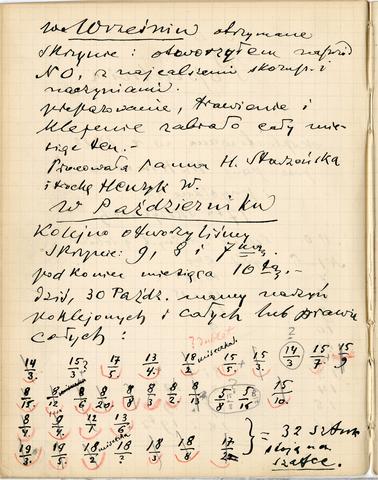 we Wrześniu otrzymane
skrzynie: otworzyłem naprzód
NO, z najcalszemi skorup. i
naczyniami.
preparowanie, trawienie i
klejenie zabrało cały mie-
siąc ten.-
Pracowała panna H.
i trochę Henryk W.
w Październiku
Kolejno otworzyliśmy
skrzynie: 9, 8 i 7mą,
pod koniec miesiąca 10tą.-
dziś, 30 Paźdz. mamy naczyń
poklejonych i całych lub prawie
całych:
2
14/3. 15/3? 17/5. 13/4. 18/2 miseczka 15/5. 15/3. 14/3 15/7. 15/9
8/15. 8/12. 8/6 8/20 8/8 8/3 8/2. 8/8. 5/8 5/16 15/10.
8/4 9/4. 12/7. 13/6
19/3. 19/5. 18/2 miseczka 18/2 18/3 18/8 17/2 } = 32 sztuk
stoją na
szafce.